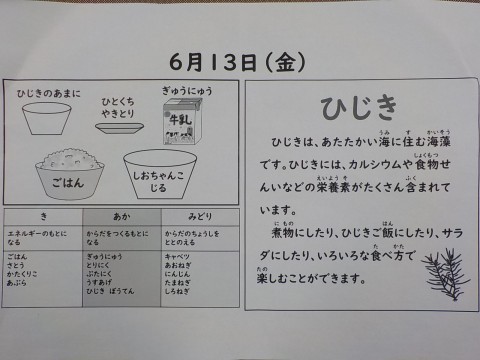 6月13日(金)
ひじきのあまに
ひとくち
やきとり
ぎゅうにゅう
牛乳
ごはん
しおちゃんこ
じる
き
あか
みどり
エネルギーのもとに
なる
からだをつくるもとに
なる
からだのちょうしを
ととのえる
ごはん
さとう
かたくりこ
あぶら
ぎゅうにゅう
とりにく
ぶたにく
うすあげ
ひじき ぼうてん
キャベツ
あおねぎ
にんじん
たまねぎ
しろねぎ
ひじき
うみ す かいそう
ひじきは、あたたかい海に住む海藻
しょくもつ
です。ひじきには、カルシウムや食物せ
えいようそ ふく
んいなどの栄養素がたくさん含まれて
います。
にもの はん
煮物にしたり、ひじきご飯にしたり、サラ
た かた
ダにしたり、いろいろな食べ方で
たの
楽しむことができます。